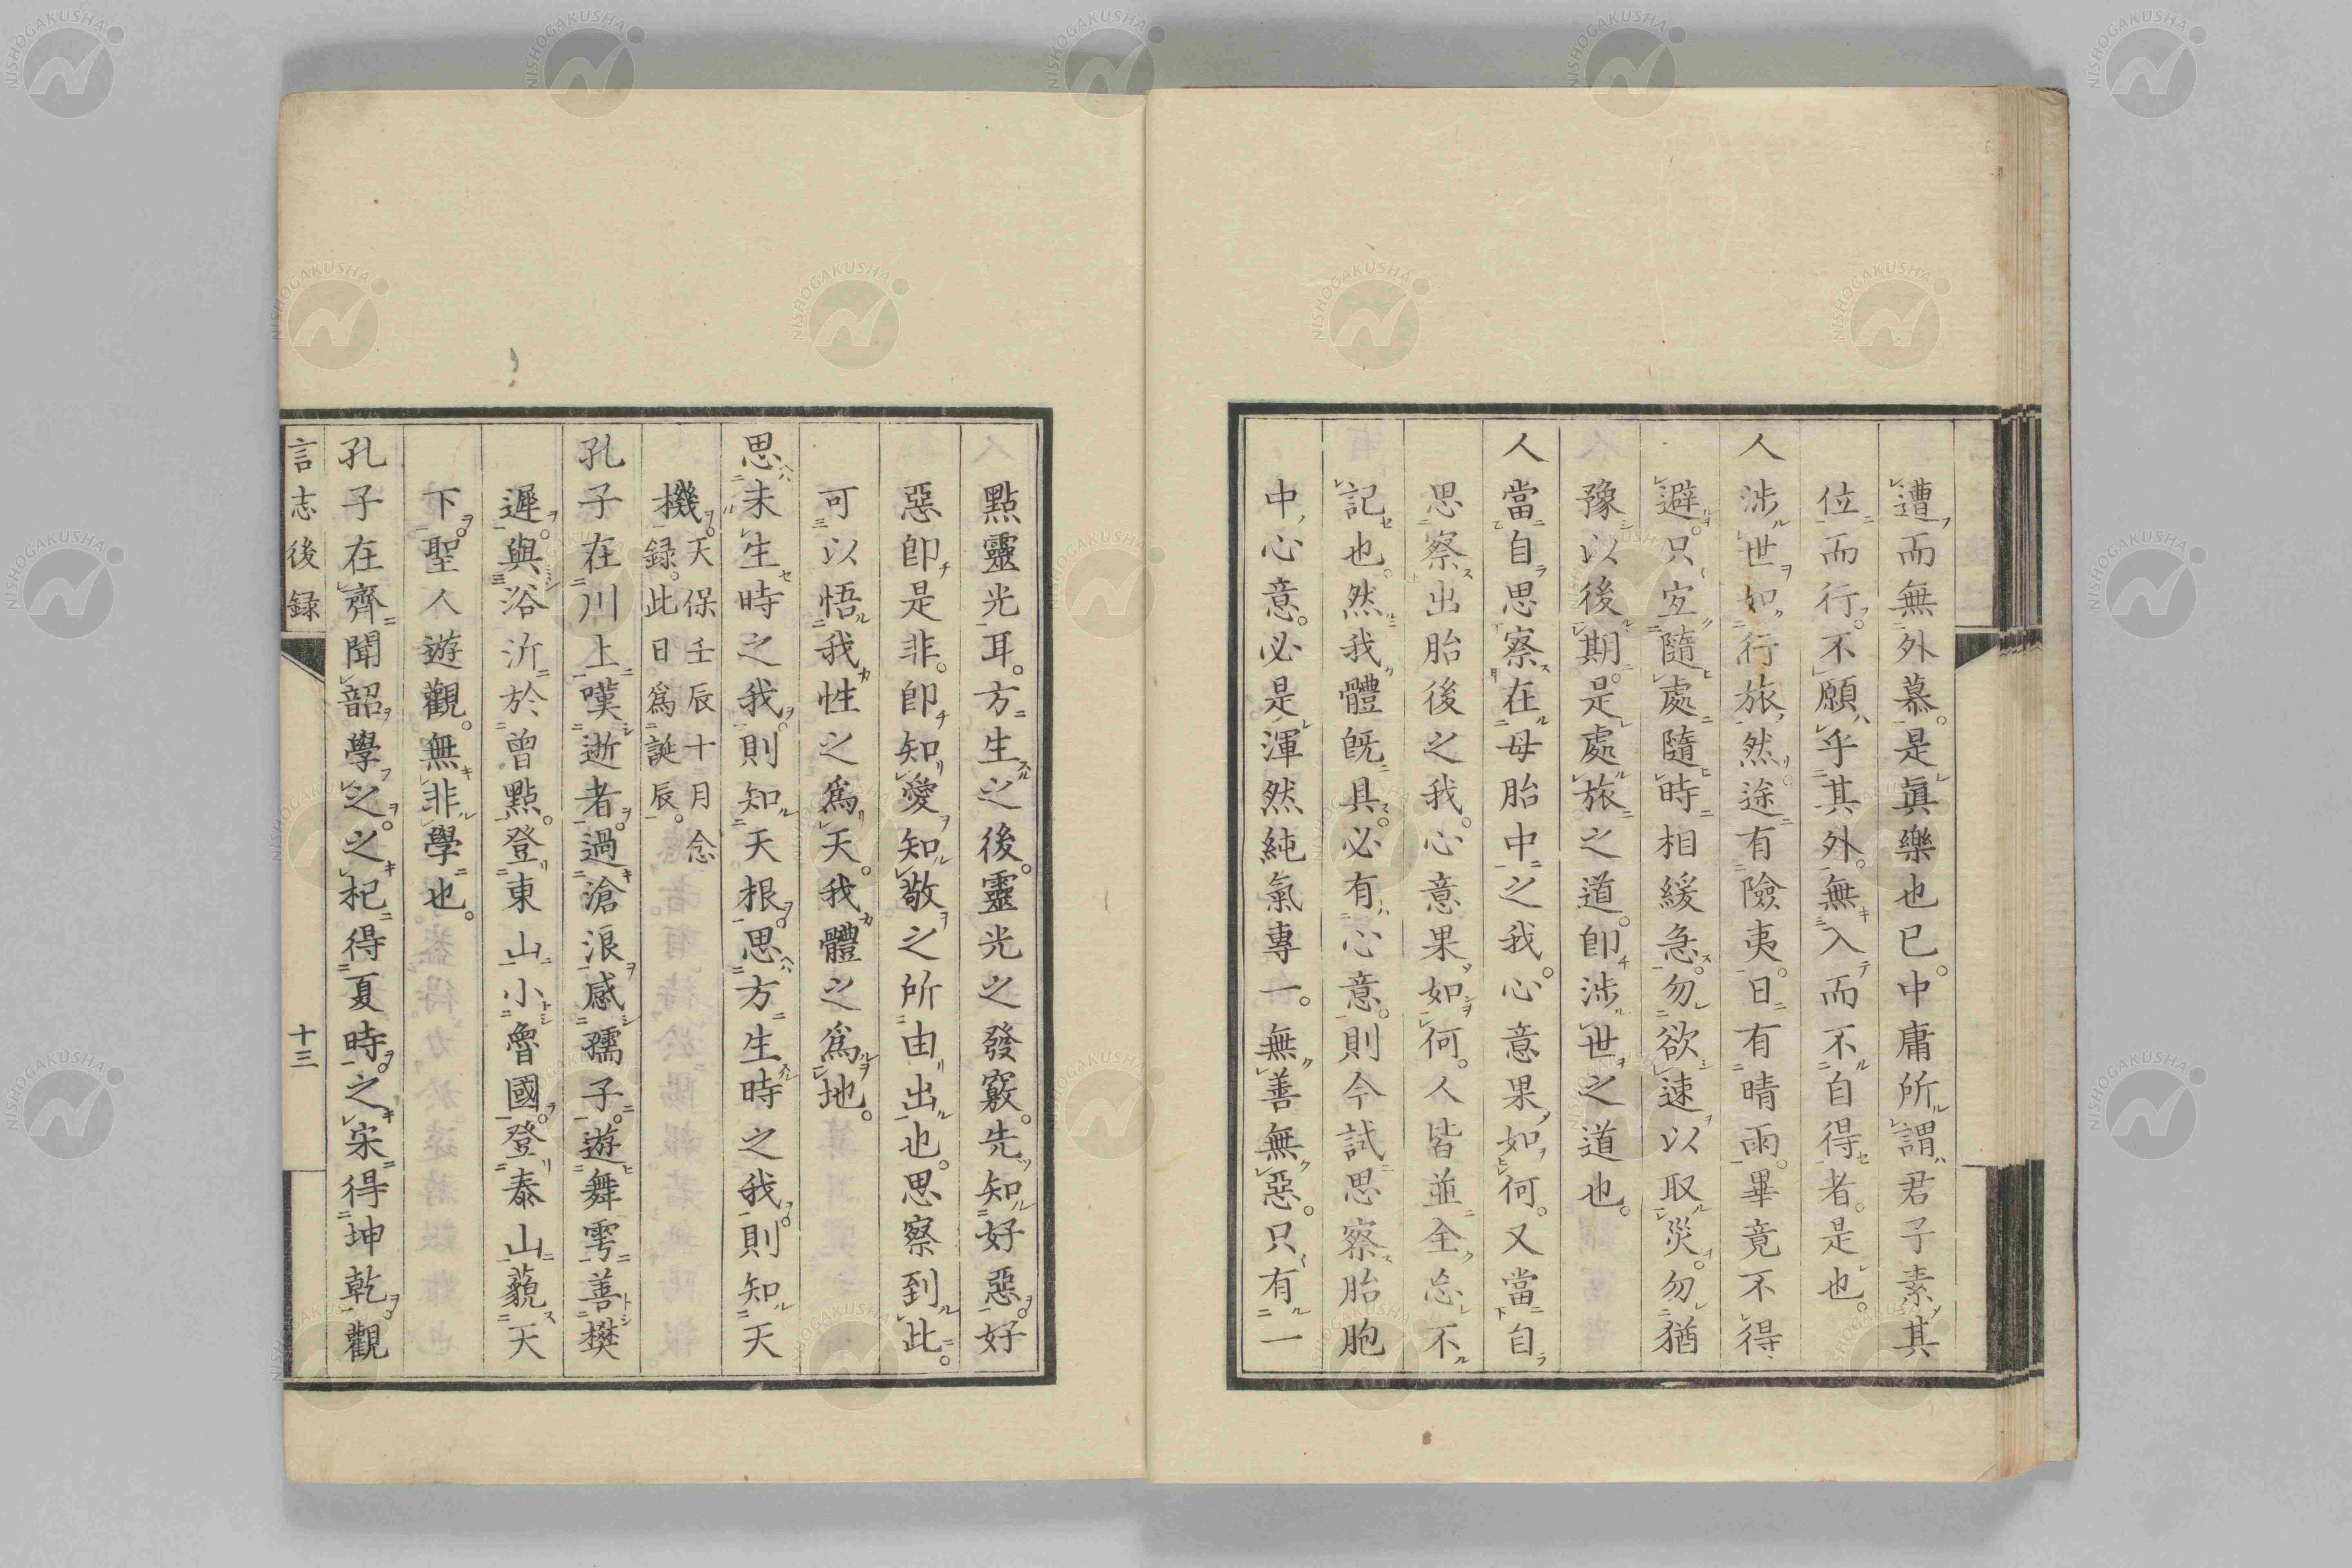 遭而無外慕。是眞樂也已。中庸所謂君子素其
位而行。不願乎其外。無入而不自得者。是也。
人涉世如行旅。然途有險夷。日有晴雨。畢竟不得
避。只宜隨處隨時相緩急。勿欲速以取災。勿猶
豫以後期。是處旅之道。卽涉世之道也。
人當自思察在母胎中之我。心意果如何。又當自
思察出胎後之我。心意果如何。人皆並全忘不
記也。然我體旣具。必有心意。則今試思察胎胞
中心意。必是渾然純氣專一。無善無惡。只有一
點靈光耳。方生之後。靈光之發竅。先知好惡。好
惡卽是非。卽知愛知敬之所由出也。思察到此。
可以悟我性之爲天。我體之爲地。
思未生時之我。則知天根。思方生時之我。則知天
機。天保壬辰十月念
録。此日爲誕辰。
孔子在川上。嘆逝者。過滄浪感孺子。遊舞雩善樊
遲。與浴沂於曾點。登東山小魯國。登泰山藐天
下。聖人遊觀。無非學也。
孔子在齊聞韶學之。之杞得夏時。之宋得坤乾。觀
言志後録
十三
NISHOGAKUSHA